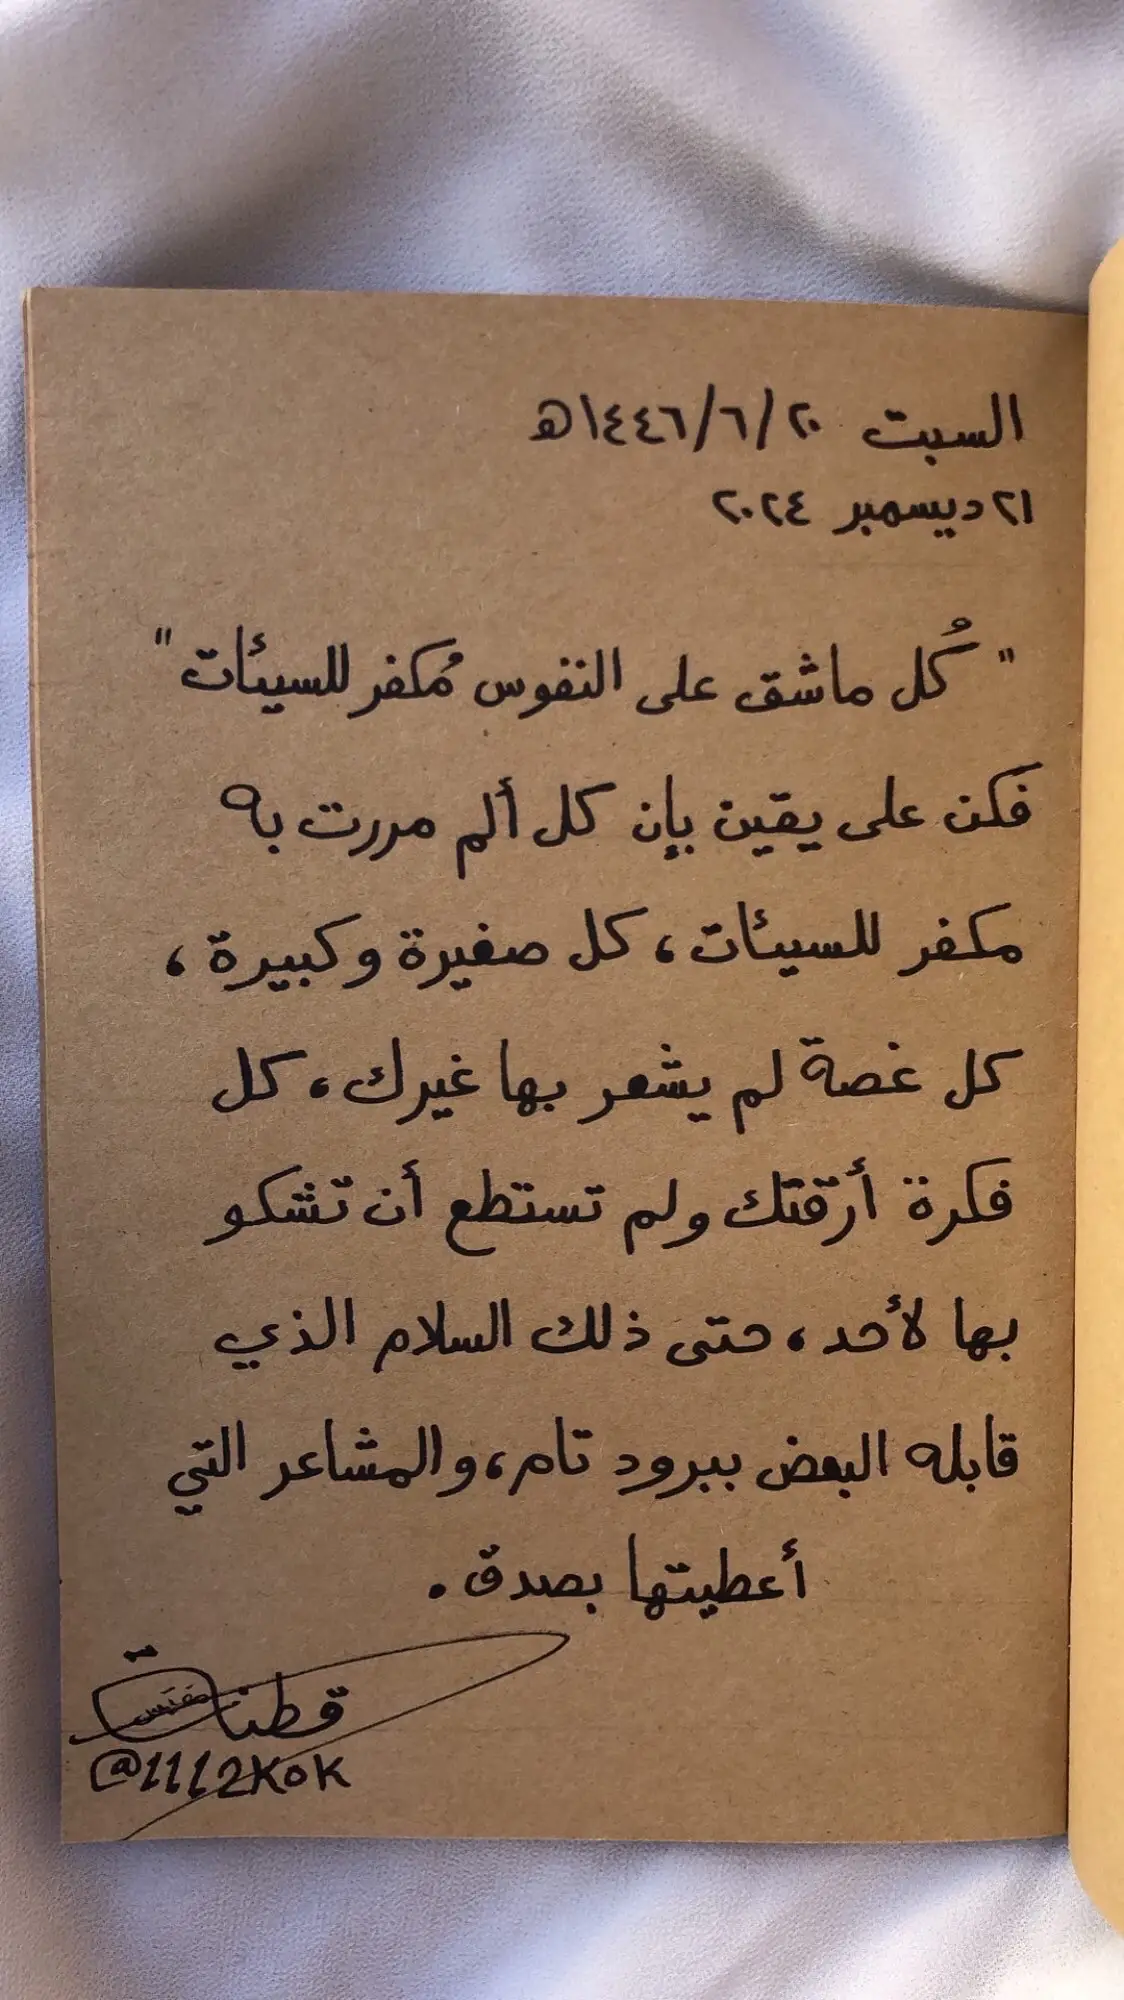 السبت ٢٠/٦/١٤٤٦هـ
٢١ ديسمبر ٢٠٢٤
" كُل ماشق على النفوس مُكفر للسيئات "
فكن على يقين بإن كل ألم مررت به
مكفر للسيئات، كل صغيرة وكبيرة،
كل غصة لم يشعر بها غيرك، كل
فكرة أرقتك ولم تستطع أن تشكو
بها لأحد، حتى ذلك السلام الذي
قابله البعض ببرود تام، والمشاعر التي
أعطيتها بصدق.
@1112KOK